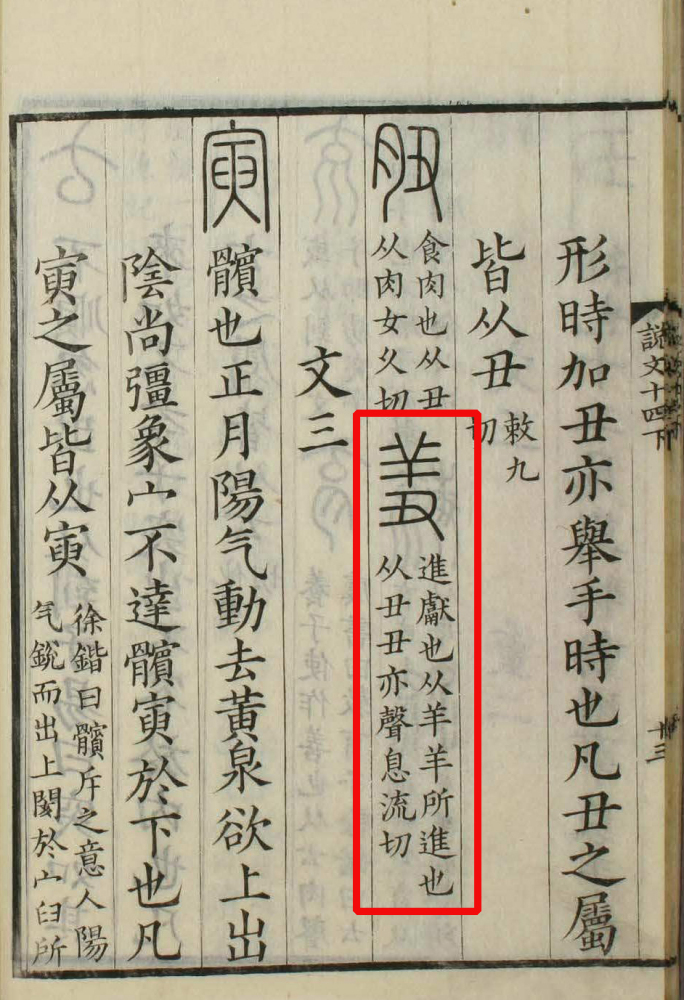 説文十四下
十三
形時加丑亦舉手時也凡丑之屬
皆从丑
敕九
切
𦙄
食肉也从丑
从肉女久切
羞
進獻也从羊羊所進也
从丑丑亦聲息流切
文三
寅
髕也正月陽气動去黃泉欲上出
陰尚彊象宀不達髕寅於下也凡
寅之屬皆从寅
徐鍇曰髕斥之意人陽
气銳而出上閡於宀臼所